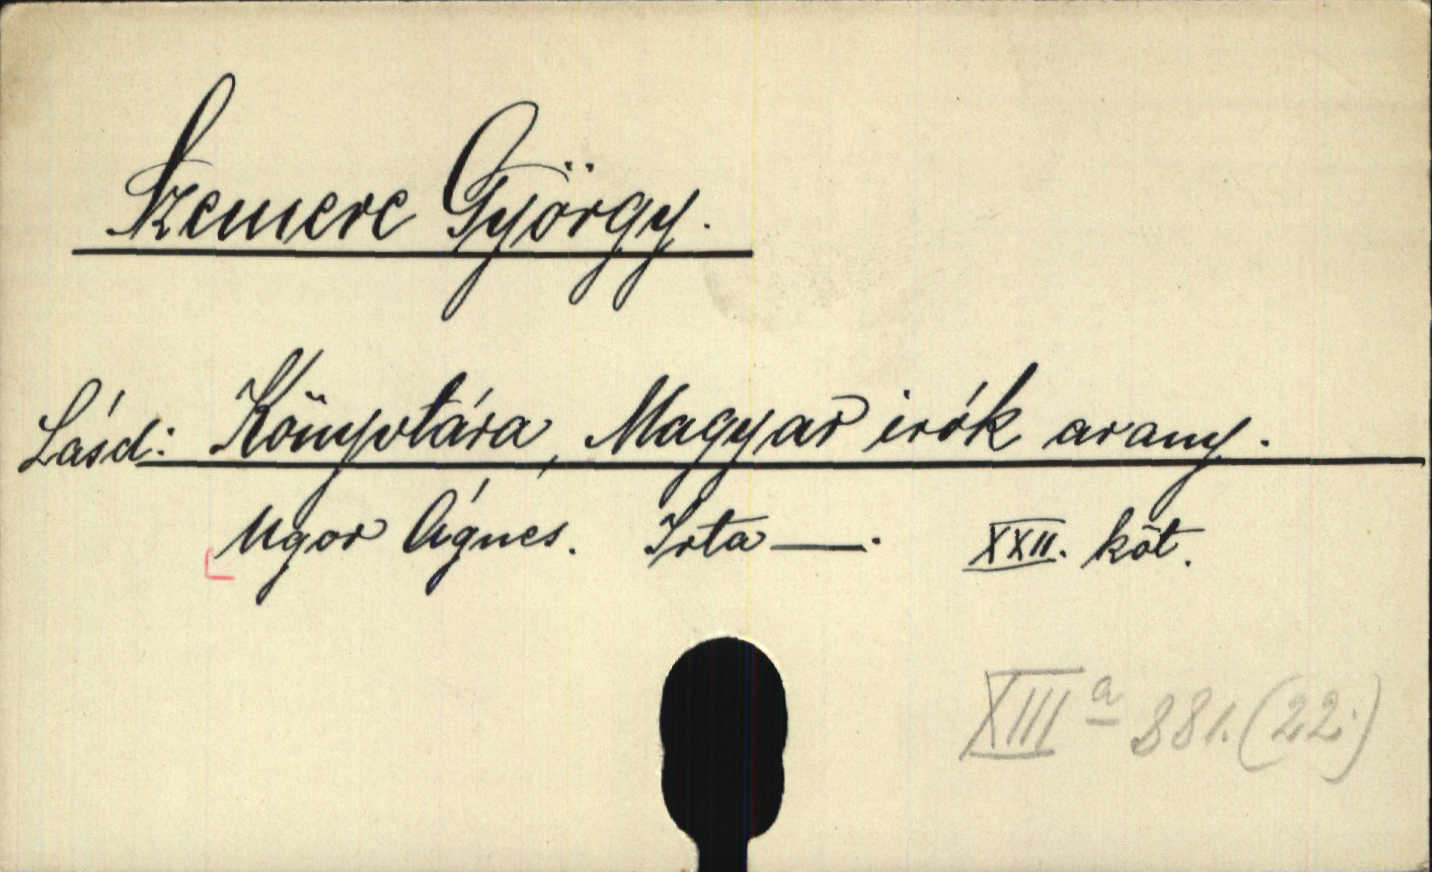 Szemere György.
Lásd: Könyvtára, Magyar irók arany.
Ugor Ágnes. Irta —. XXII. köt.
XIII a 881. (22.)